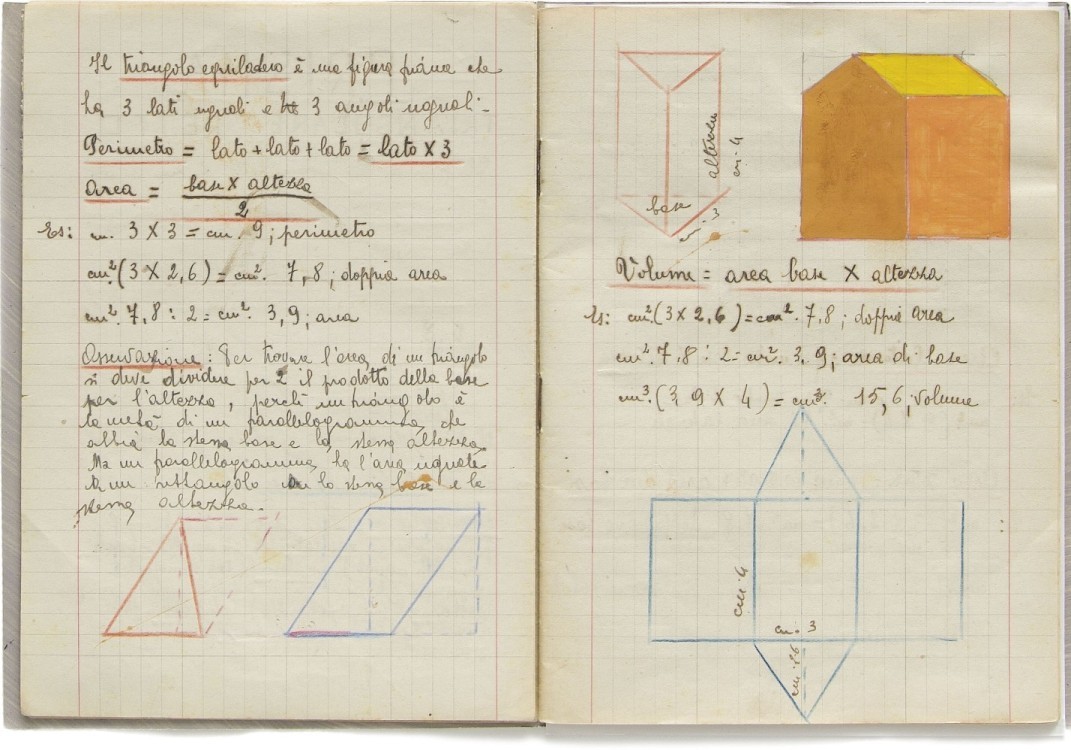 Il triangolo equiladero è una figura piana che
ha 3 lati uguali e 3 angoli uguali -
Perimetro = lato + lato + lato = lato X 3
area = base X altezza
2
Es: cm. 3 X 3 = cm. 9; perimetro
cm². (3 X 2,6) = cm². 7,8; doppia area
cm². 7,8 : 2 = cm². 3,9; area
Osservazione: Per trovare l'area di un triangolo
si deve dividere per 2 il prodotto della base
per l'altezza, perchè un triangolo è
la metà di un parallelogramma che
abbia la stessa base e la stessa altezza.
Ma un parallelogramma ha l'area uguale
a un rettangolo con la stessa base e la
stessa altezza.
altezza
cm. 4
base
cm. 3
Volume = area base X altezza
Es: cm². (3 X 2,6) = cm². 7,8; doppia area
cm². 7,8 : 2 = cm². 3,9; area di base
cm³. (3,9 X 4) = cm³. 15,6; volume
cm. 4
cm. 3
cm. 2,6